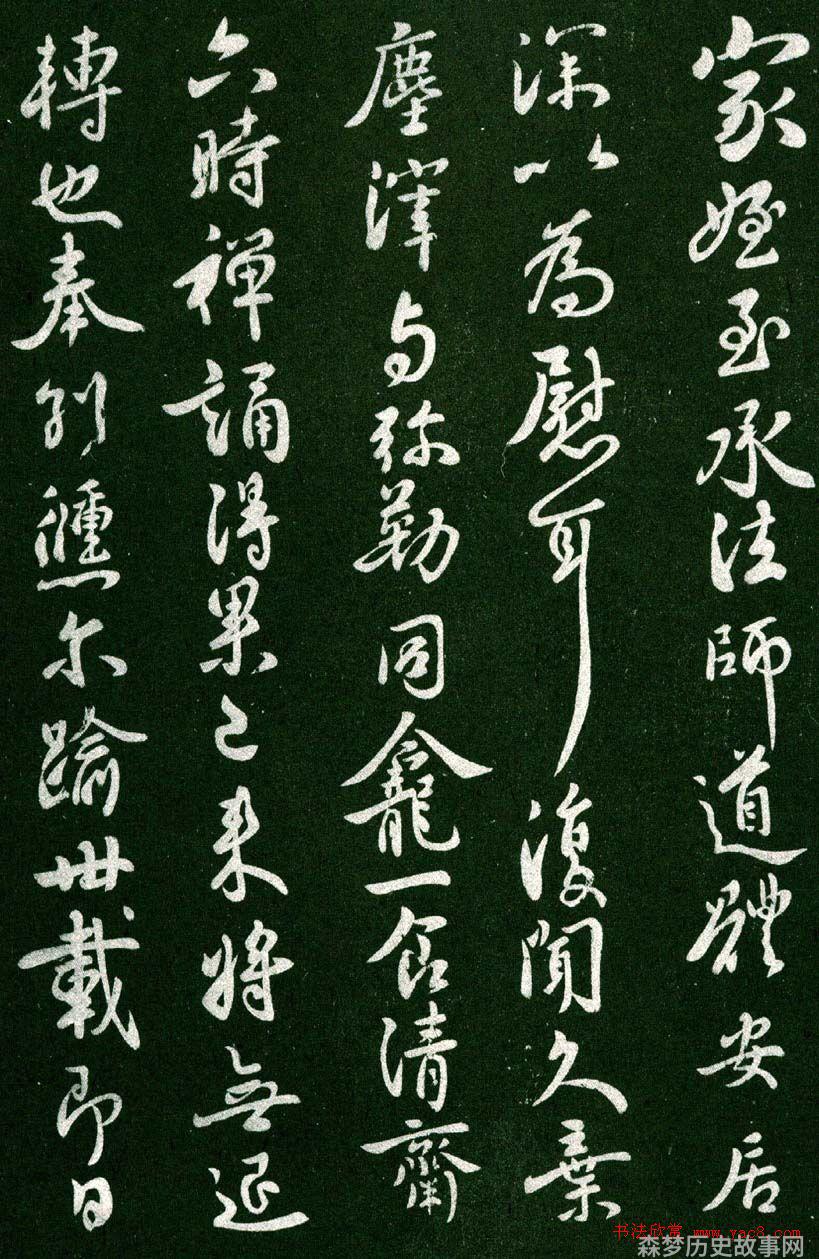 家姪至承法師道體安居
深以爲慰耳復聞久棄
塵滓与弥勒同龕一食清齋
六時禪誦得果已来將無退
轉也奉別倐尔踰卅載即日
书法欣赏 www.yac8.com
森梦历史故事网